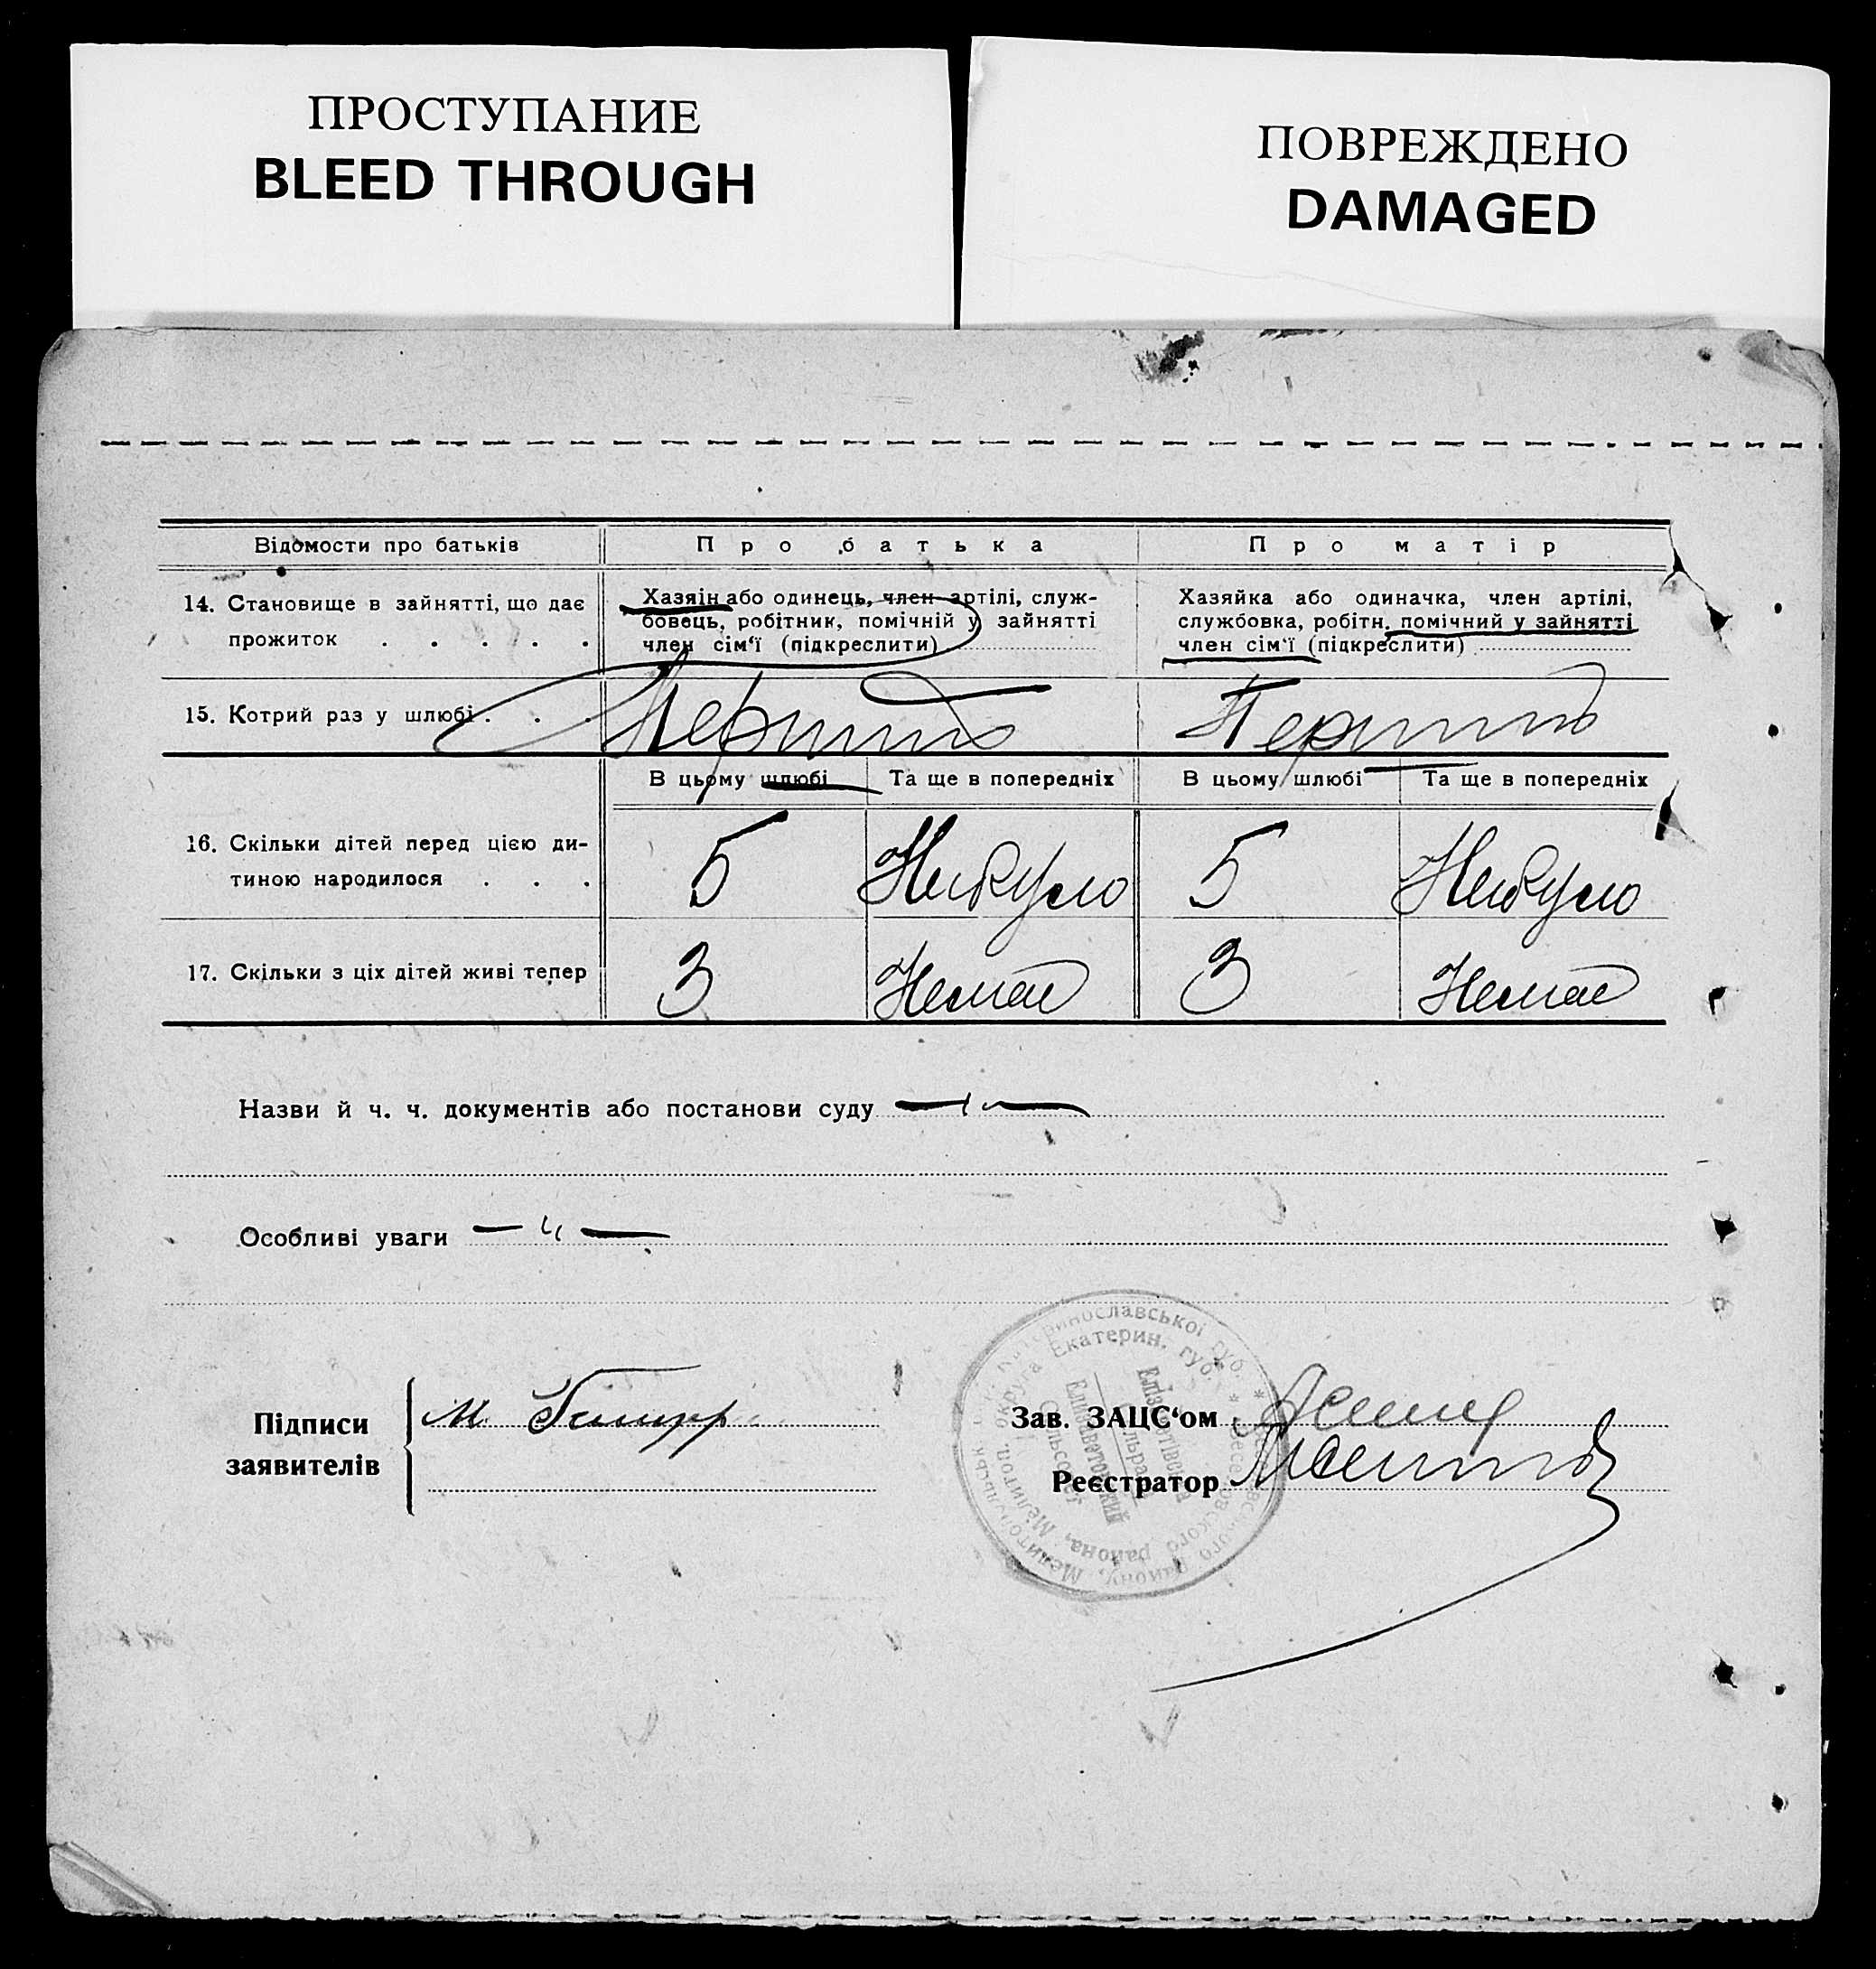 ПРОСТУПАНИЕ
BLEED THROUGH
ПОВРЕЖДЕНО
DAMAGED
Відомости про батьків
Про батька
Про матір
14. Становище в зайнятті, що дає
прожиток . . . . .
Хазяін або одинець, член артілі, служ-
бовець, робітник, помічній у зайнятті
член сім‘ї (підкреслити)
Хазяйка або одиначка, член артілі,
службовка, робітн. помічний у зайнятті
член сім‘ї (підкреслити)
15. Котрий раз у шлюбі . . .
Перший
Перший
В цьому шлюбі
Та ще в попередніх
В цьому шлюбі
Та ще в попередніх
16. Скільки дітей перед цією ди-
тиною народилося . . .
5
Небуло
5
Небуло
17. Скільки з ціх дітей живі тепер
3
Немає
3
Немає
Назви й ч. ч. документів або постанови суду
Особливі уваги
Підписи
заявителів
М
Зав. ЗАЦС‘ом
Реєстратор
Екатерин. губ. * Веселовского района, Мелитоп. округа
Елизаветовский
Сельсовет